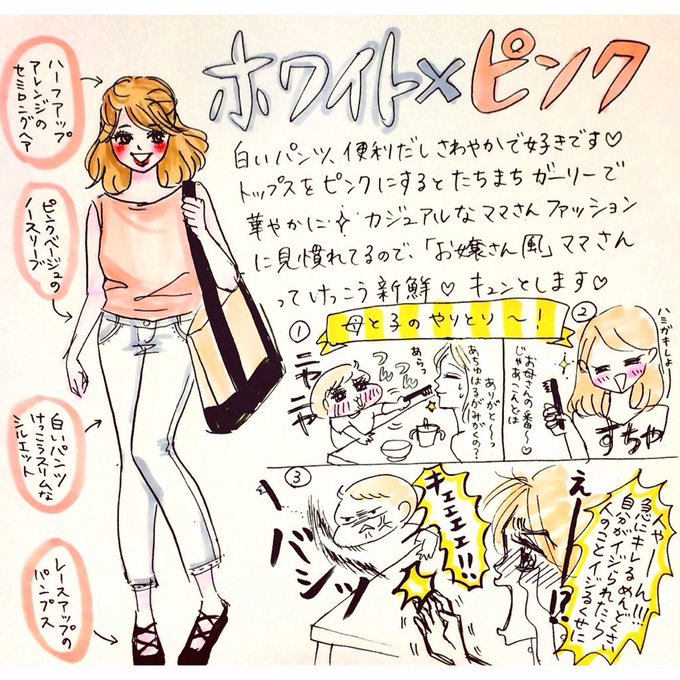 ホワイト×ピンク
白いパンツ、便利だしさわやかで好きです♡
トップスをピンクにするとたちまちガーリーで
華やかに✧ カジュアルなママさんファッション
に見慣れてるので、「お嬢さん風」ママさん
ってけっこう新鮮♡ キュンとします♡
ハーフアップ
アレンジの
セミロングヘア
ピンクベージュの
ノースリーブ
白いパンツ
けっこうスリムな
シルエット
レースアップの
パンプス
母と子のやりとり〜!
①
ニヤニヤ
つんつん
あらっ
ありがと〜っ
あちゅはるがみがくの?
②
ハミガキしよー
お母さんの番〜♡
じゃあこんどは
すちゃ
③
バシッ
キエエエエ!!
えー!?
人やーーん!!!
急にキレるめんどくさい
自分がイジられたら
人のことイジるくせに